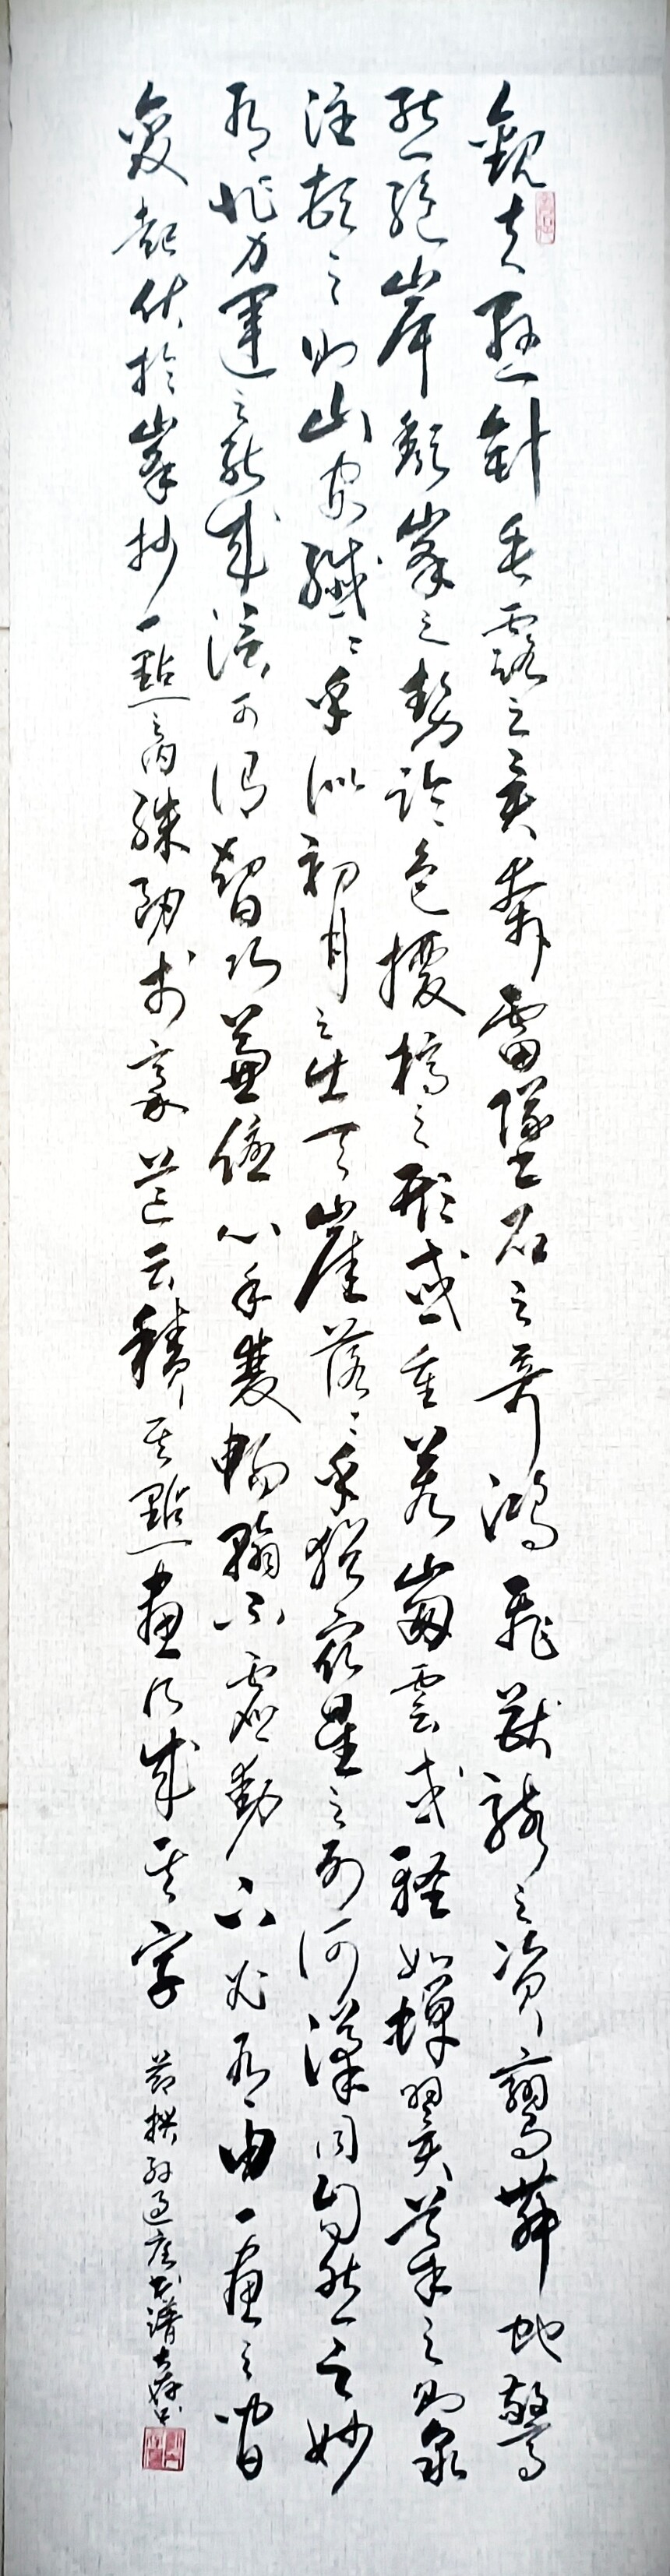 觀夫懸針垂露之異奔雷墜石之奇鴻飛獸駭之資鸞舞蛇驚
態絕岸頹峯之勢臨危據槁之形或重若崩雲或輕如蟬翼導之則泉
注頓之則山安纖〻乎似初月之出天崖落〻乎猶衆星之列河漢同自然之妙
有非力運之能成信可謂智巧兼優心手雙暢翰不虛動下必有由一畫之間
變起伏於峯杪一點之內殊衄於豪芒云積其點畫乃成其字
節錄孫過庭書譜